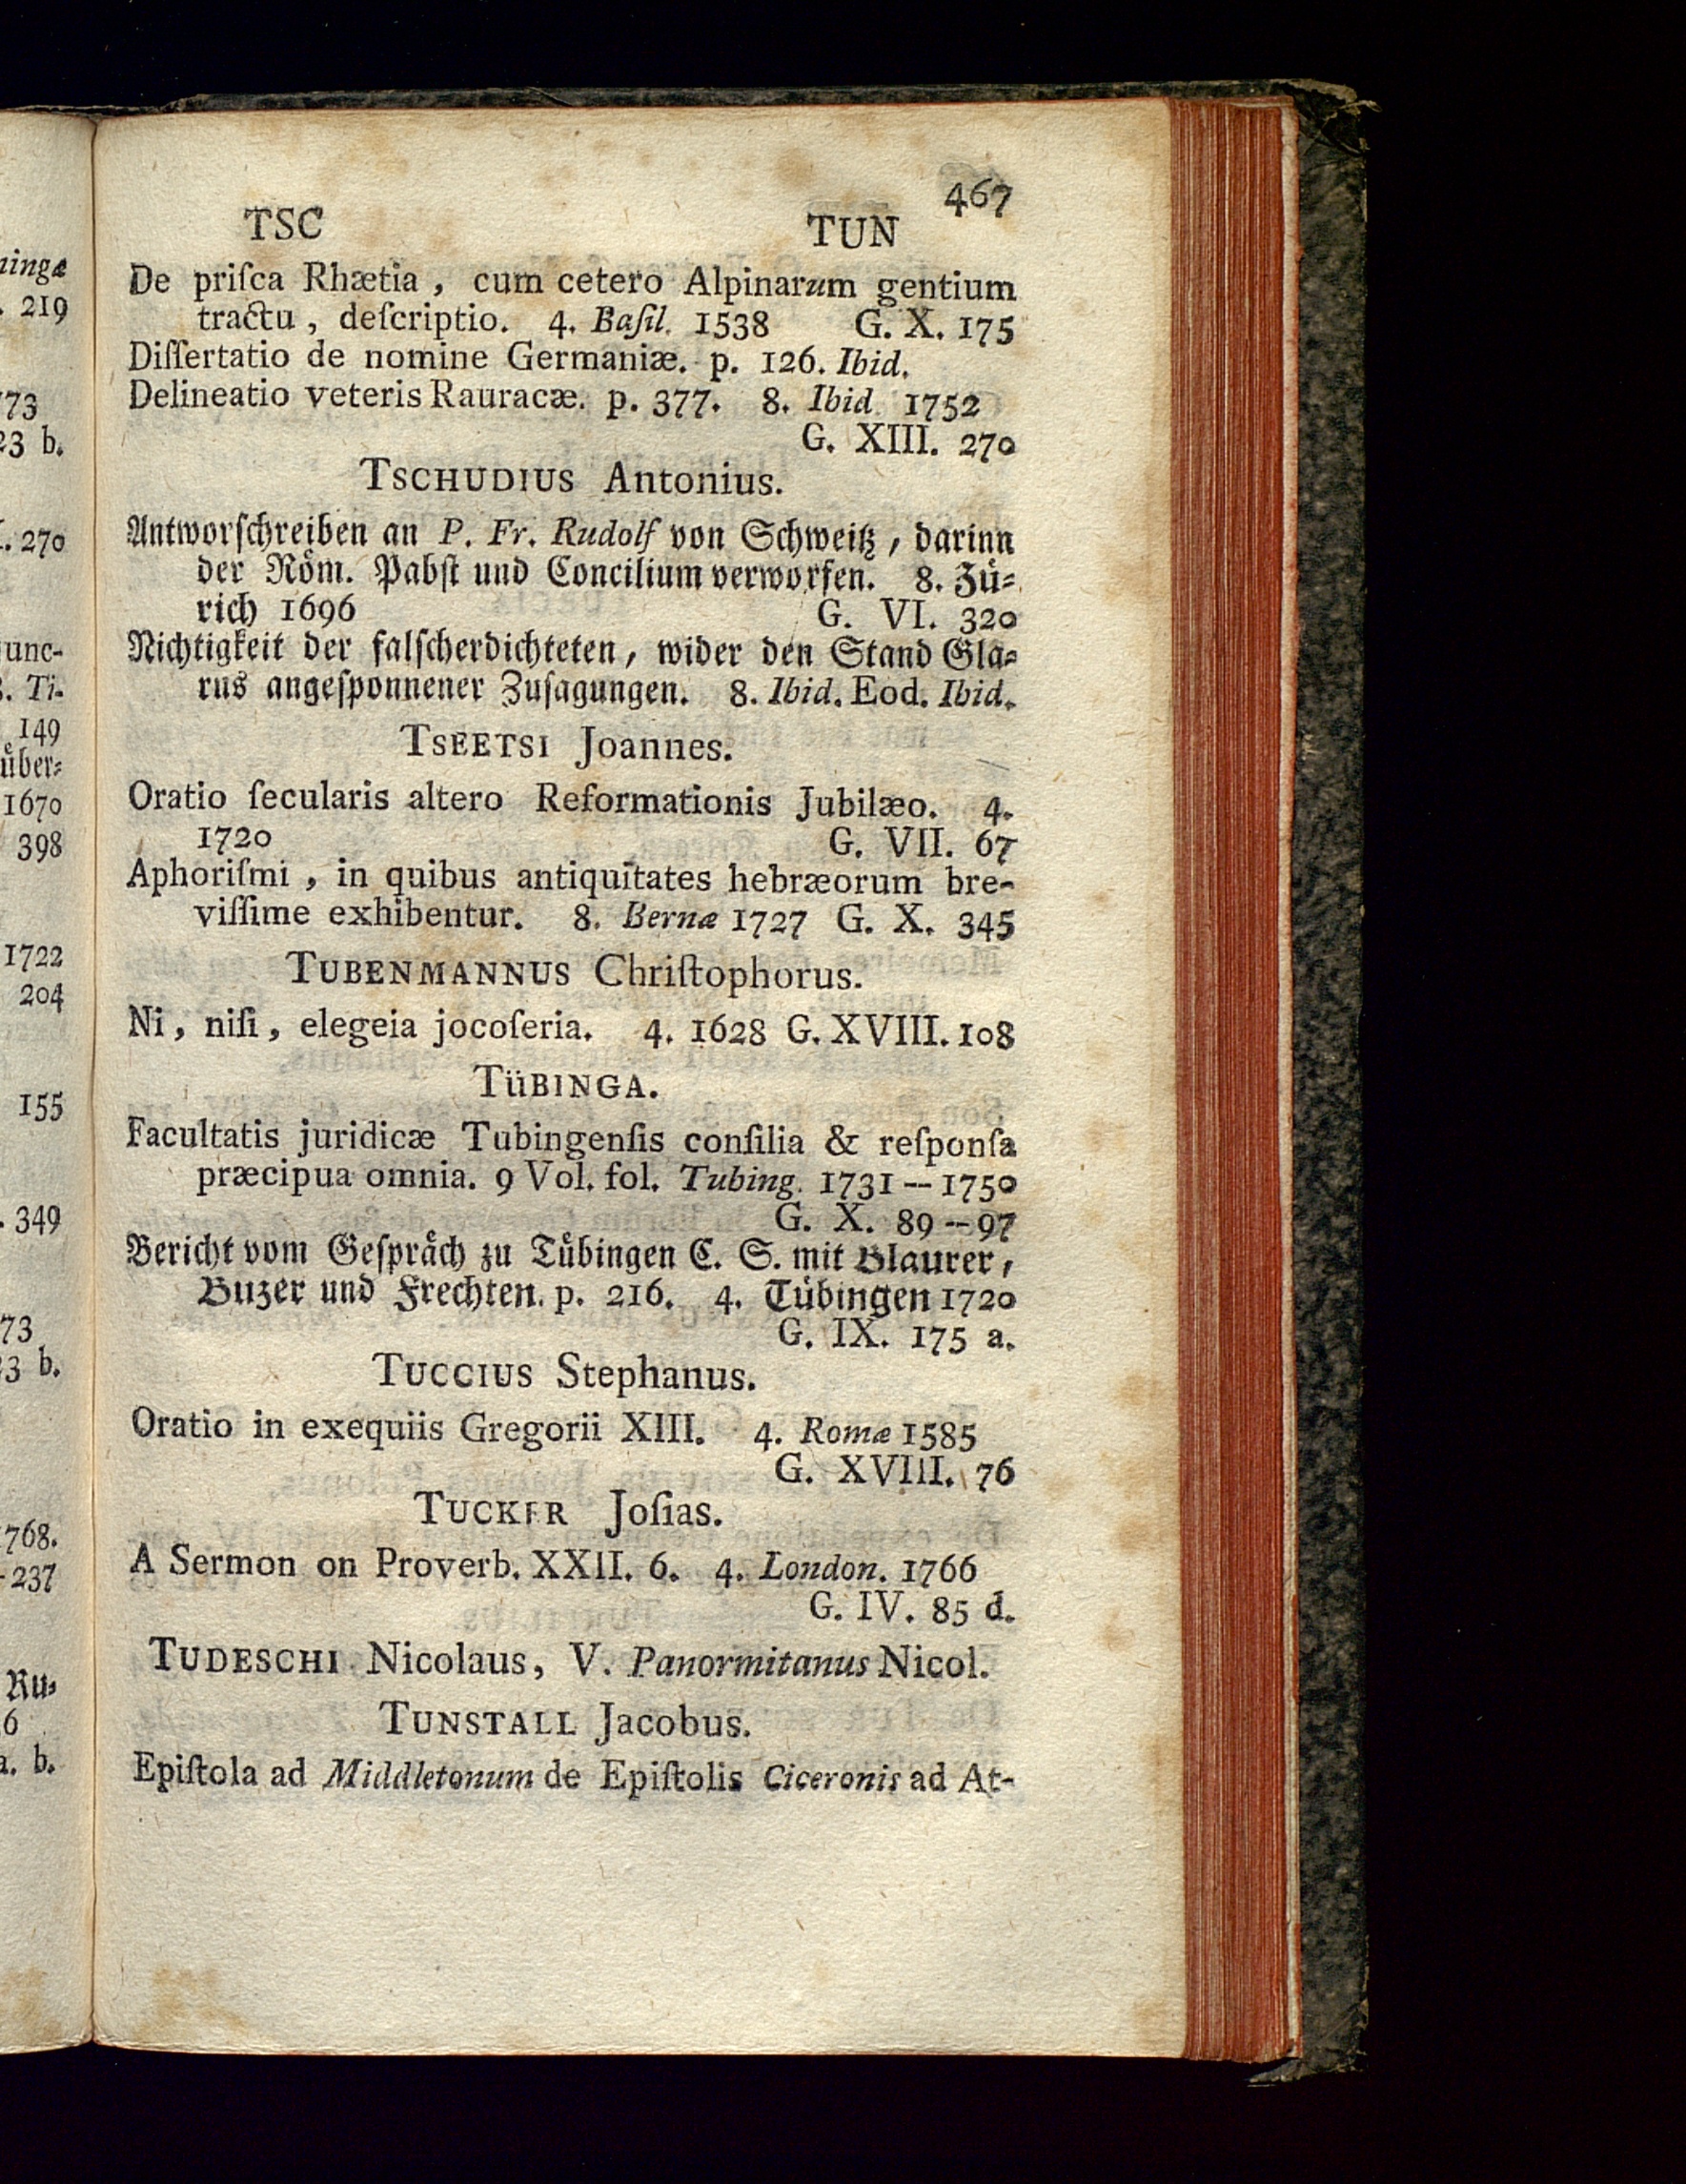 ningæ
. 219
73
23 b.
. 270
junc-
8. Ti-
149
über-
1670
398
1722
204
155
. 349
73
3 b.
1768.
-237
Ru-
6
a. b.
467
TSC TUN
De priſca Rhætia, cum cetero Alpinarum gentium
tractu, deſcriptio. 4. Baſil. 1538 G. X. 175
Diſſertatio de nomine Germaniæ. p. 126. Ibid.
Delineatio veteris Rauracæ. p. 377. 8. Ibid. 1752
G. XIII. 270
TSCHUDIUS Antonius.
Antworſchreiben an P. Fr. Rudolf von Schweitz, darinn
der Röm. Pabſt und Concilium verworfen. 8. Zü-
rich 1696 G. VI. 320
Nichtigkeit der falſcherdichteten, wider den Stand Gla-
rus angeſponnener Zuſagungen. 8. Ibid. Eod. Ibid.
TSEETSI Joannes.
Oratio ſecularis altero Reformationis Jubilæo. 4.
1720 G. VII. 67
Aphoriſmi, in quibus antiquitates hebræorum bre-
viſſime exhibentur. 8. Bernæ 1727 G. X. 345
TUBENMANNUS Chriſtophorus.
Ni, niſi, elegeia jocoſeria. 4. 1628 G. XVIII. 108
TÜBINGA.
Facultatis juridicæ Tubingenſis conſilia & reſponſa
præcipua omnia. 9 Vol. fol. Tubing. 1731--1750
G. X. 89--97
Bericht vom Geſpräch zu Tübingen C. S. mit Blaurer,
Buzer und Frechten. p. 216. 4. Tübingen 1720
G. IX. 175 a.
TUCCIUS Stephanus.
Oratio in exequiis Gregorii XIII. 4. Romæ 1585
G. XVIII. 76
TUCKER Joſias.
A Sermon on Proverb. XXII. 6. 4. London. 1766
G. IV. 85 d.
TUDESCHI Nicolaus, V. Panormitanus Nicol.
TUNSTALL Jacobus.
Epiſtola ad Middletonum de Epiſtolis Ciceronis ad At-